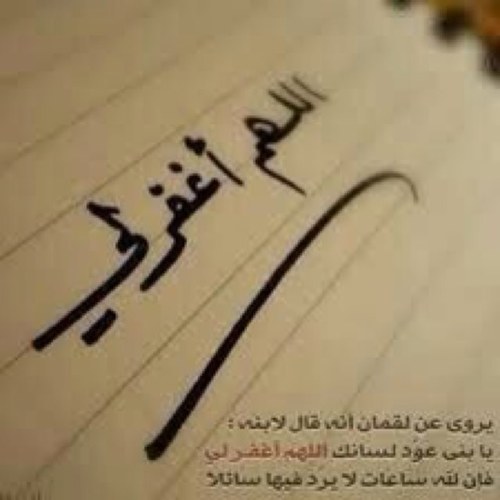 اللهم أغفر لي
يروى عن لقمان أنه قال لابنه :
يا بني عوّد لسانك اللهم أغفر لي
فإن لله ساعات لا يرد فيها سائلاً